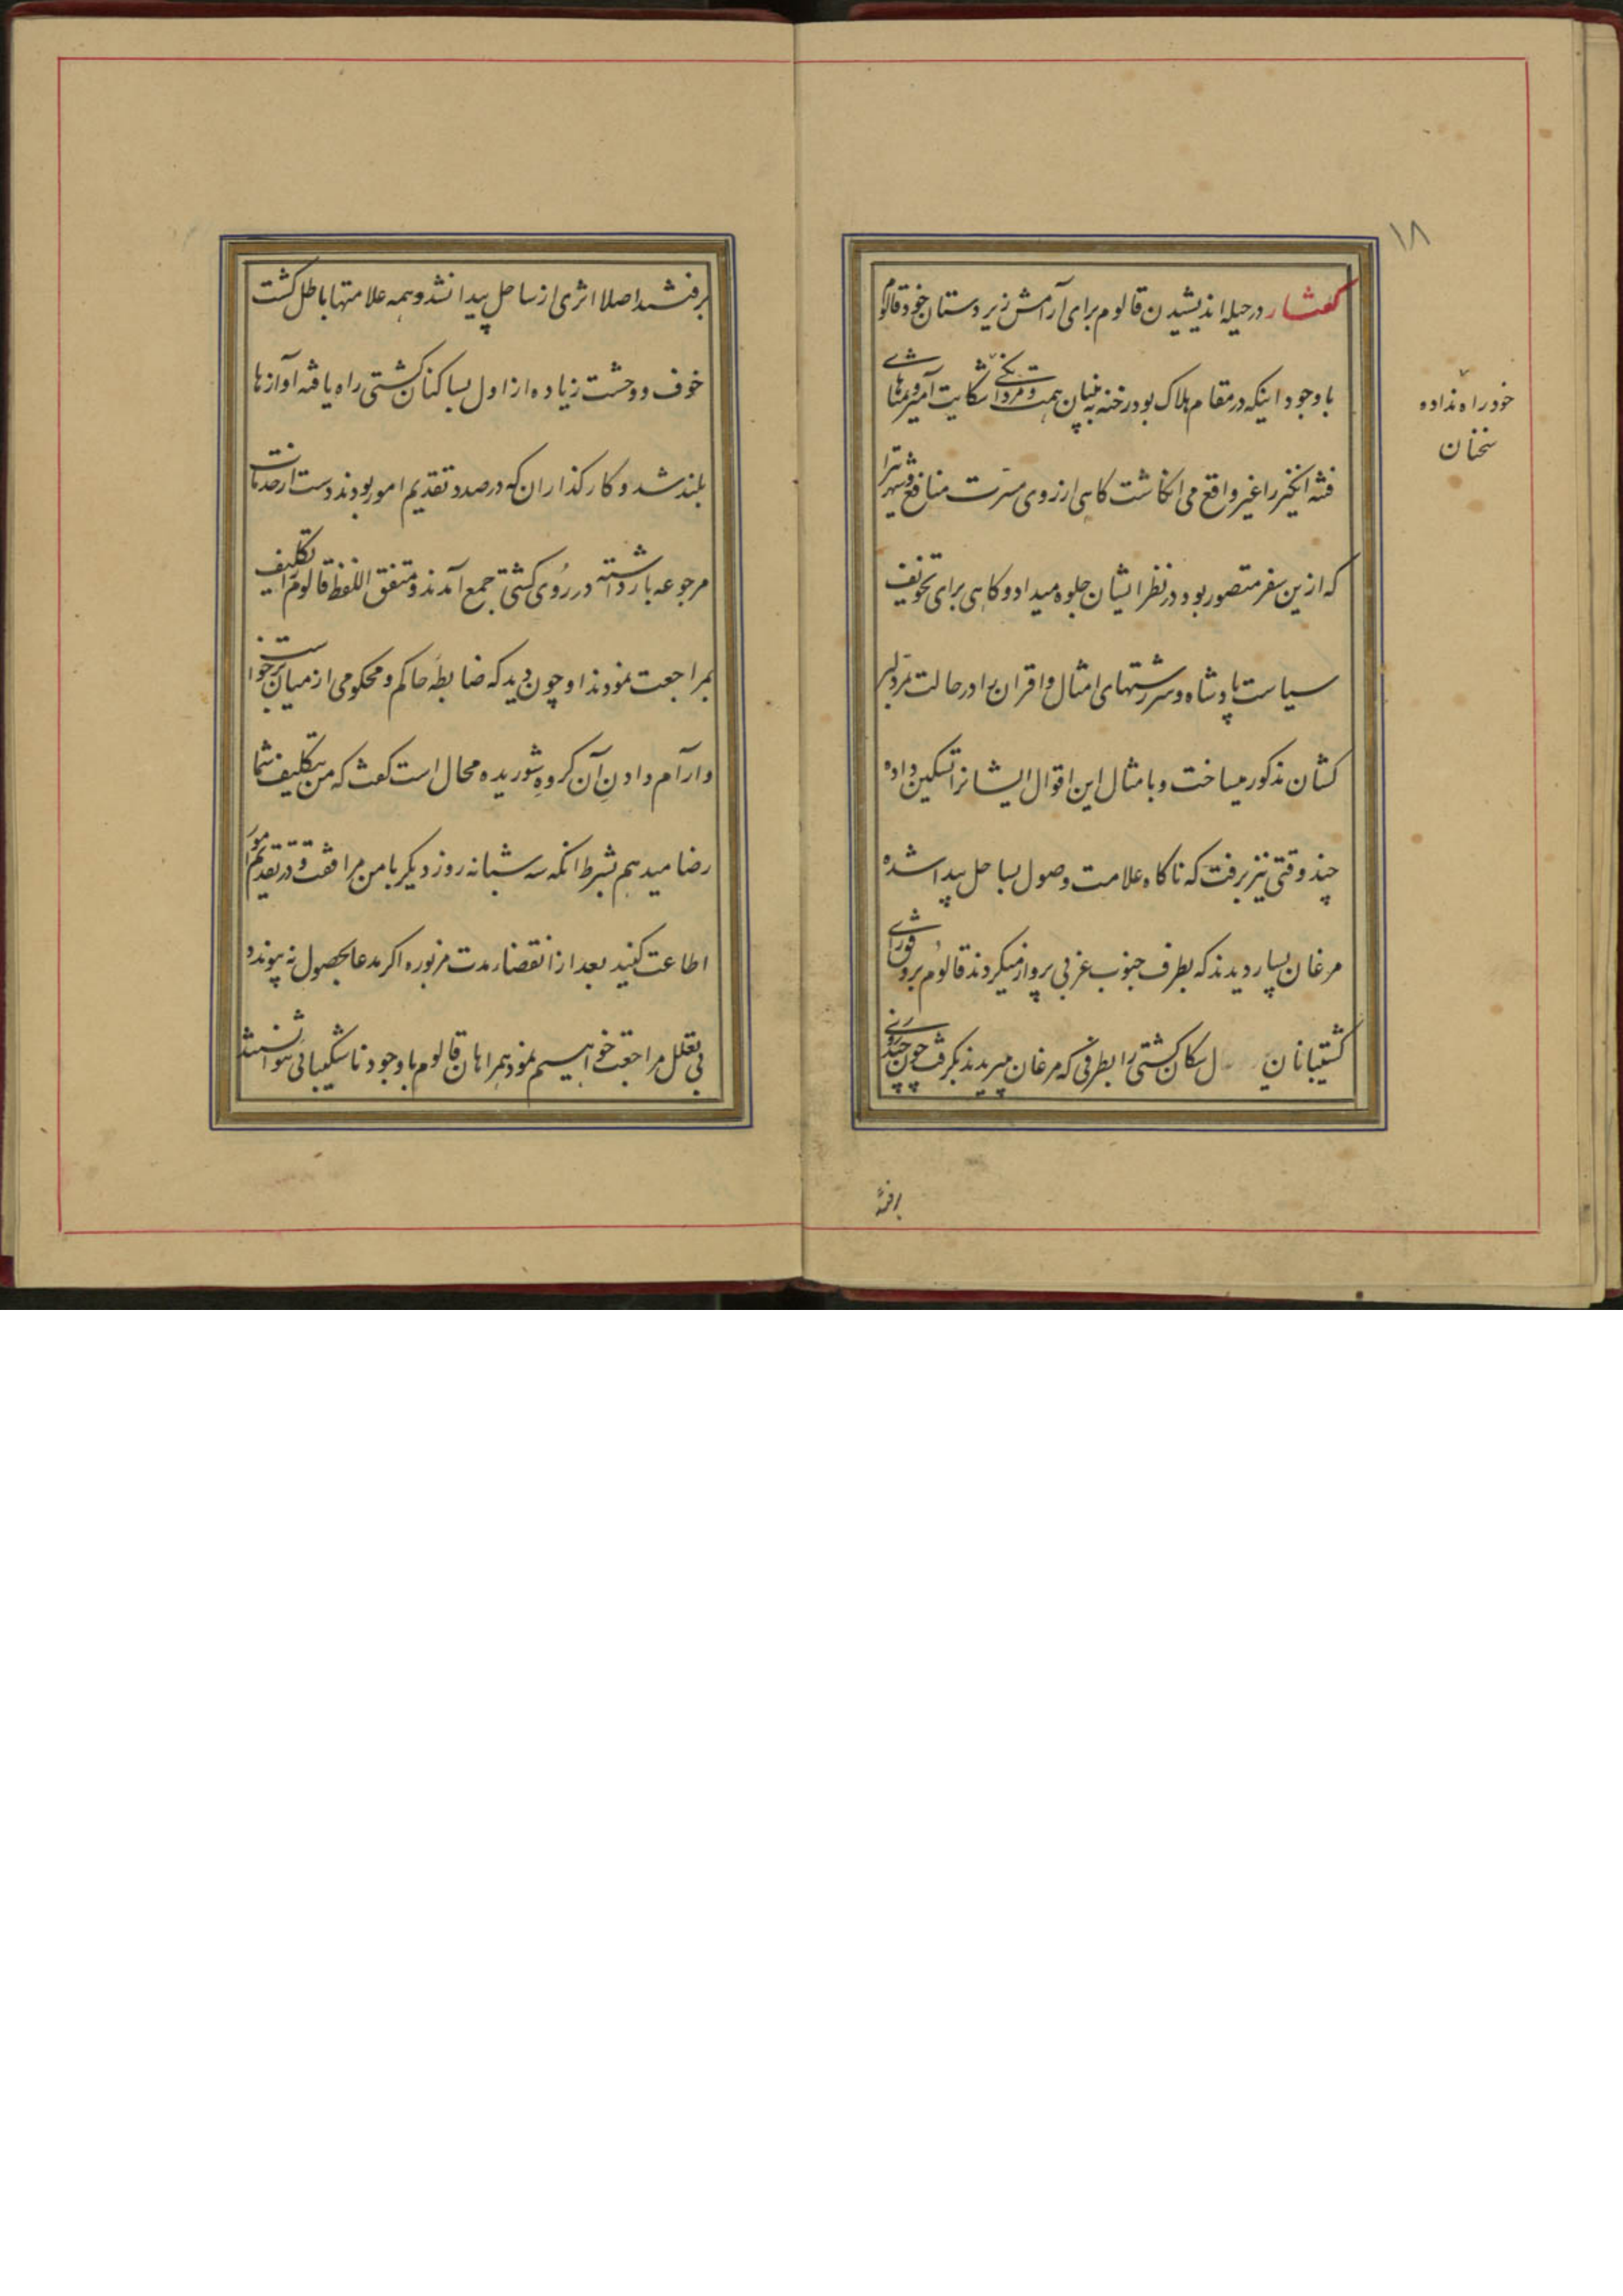 ۱۸
گفتار در حیله اندیشیدن قالوم برای آرامش زیر دستان خود قالوم
با وجود اینکه در مقام هلاک بود رخنه به بنیان همت و مردانگی شکایت آمیز و تمناهای
خود راه نداده
سخنان
فتنه انگیز را غیر واقع می انگاشت کاهی ارزوی مسرت منافع و شهرت را
که ازین سفر متصور بود در نظر ایشان جلوه میداد و کاهی برای تخویف
سیاست پادشاه و سرزنشهای امثال و اقران را در حالت تمرد بر
کشان مذکور میساخت و بامثال این اقوال ایشانرا تسکین داده
چند وقتی نیز برفت که ناکاه علامت وصول بساحل پیدا شده
مرغان بسیار دیدند که بطرف جنوب غربی پرواز میکردند قالوم بر فور رای
کشتیبانان سکان کشتی را بطرفی که مرغان میپریدند بگرفت چون چند روزی
برفتند
برفتند اصلا اثری از ساحل پیدا نشد و همه علامتها باطل کشت
خوف و وحشت زیاده از اول بساکنان کشتی راه یافته آوازها
بلند شد و کارکذاران که در صدد تقدیم امور بودند دست از خدمات
مرجوعه بازداشته در روی کشتی جمع آمدند و متفق اللفظ قالوم را تکلیف
بمراجعت نمودند او چون دید که ضابطه حاکم و محکومی از میان برخواست
و آرام دادن آن کروه شوریده محال است کفت که من بتکلیف شما
رضا میدهم بشرط انکه سه شبانه روز دیکر با من مرافقت و در تقدیم امور
اطاعت کنید بعد از انقضاء مدت مزبوره اکر مدعا بحصول نه پیوندد
بی تعلل مراجعت خواهیم نمود همراهان قالوم با وجود ناشکیبائی نتوانستند